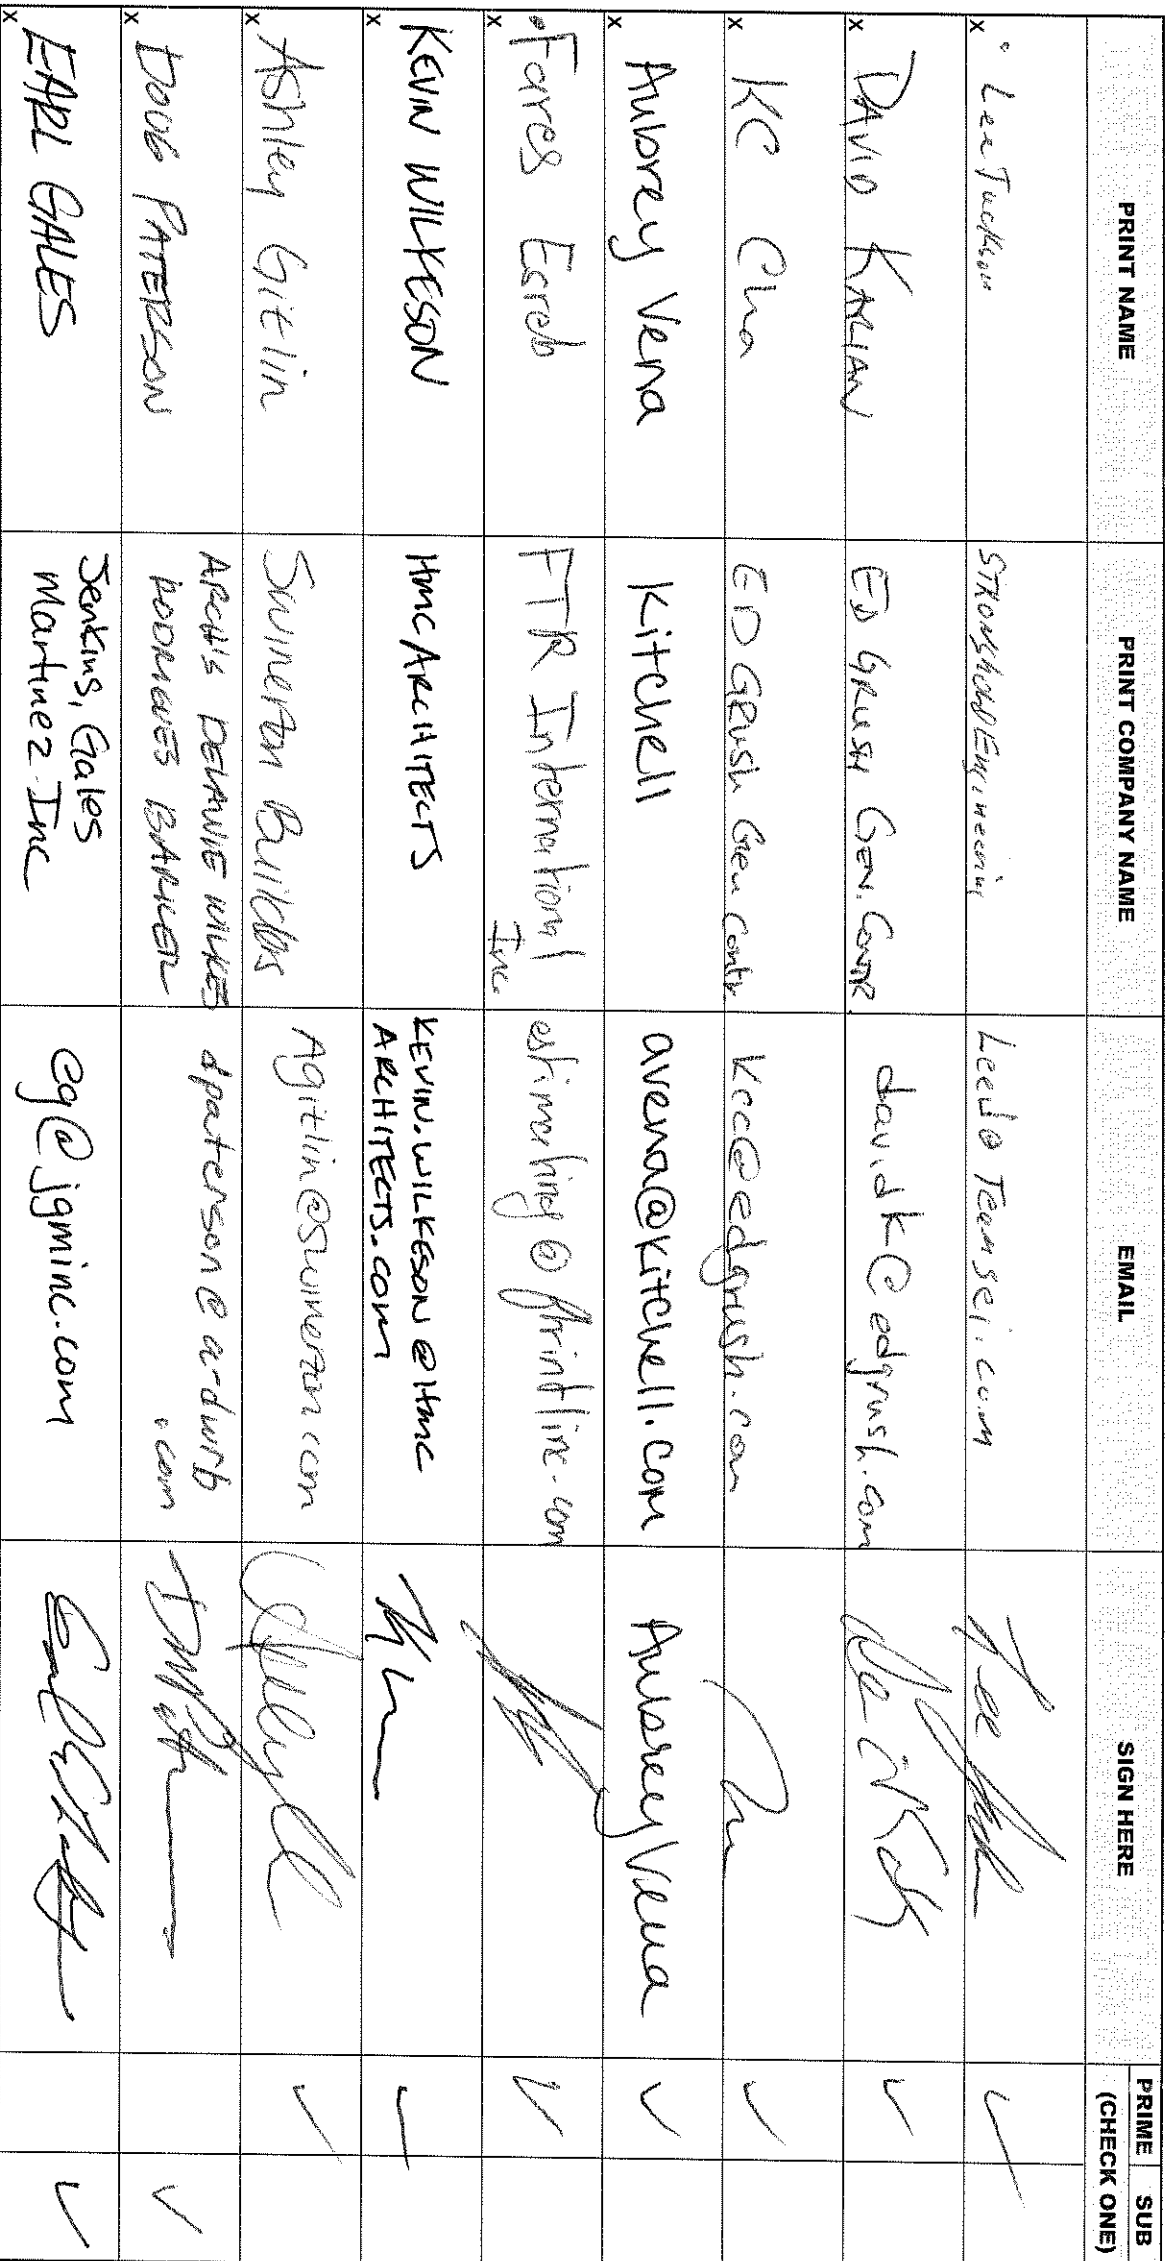 PRINT NAME PRINT COMPANY NAME EMAIL SIGN HERE PRIME SUB
(CHECK ONE)
x Lee Tuckson STRONGholD Engineering LeeJ@Teamsei.com
x DAVID KALIAN ED GRUSH GEN. CONTR. davidk@edgrush.com
x KC Cha ED GRush Gen Contr kcc@edgrush.com
x Aubrey Vena Kitchell avena@kitchell.com Aubrey Vena
x Fares Esreb FTR International estimating@ftrintlinc.com
Inc.
x KEVIN WILKESON HMC ARCHITECTS KEVIN.WILKESON@HMC
ARCHITECTS.COM
x Ashley Gitlin Swinerton Builders Agitlin@swinerton.com
x DOUG PATERSON ARCH'S DELAWIE WILKES dpaterson@ardwrb
RODRIGUES BARKER .com
x EARL GALES Jenkins, Gales eg@jgminc.com
Martinez Inc